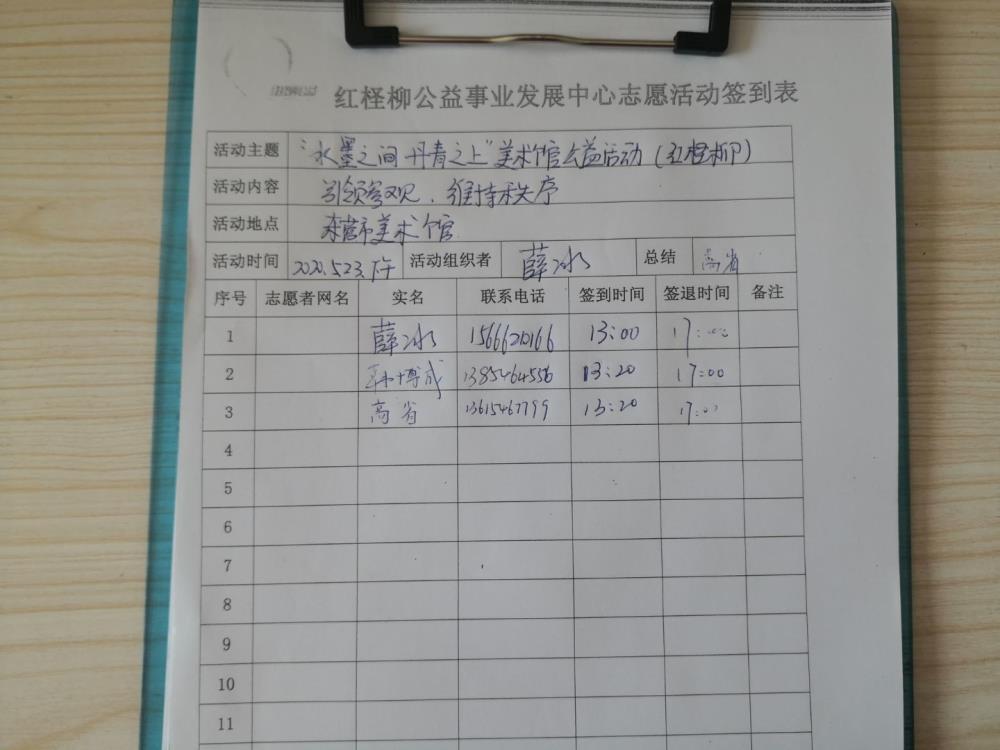 红柽柳公益事业发展中心志愿活动签到表
活动主题 “水墨之间 丹青之上”美术馆公益活动（红柽柳）
活动内容 引领参观、维持秩序
活动地点 东营市美术馆
活动时间 2020.5.23.下午 活动组织者 薛冰 总结 高省
序号 志愿者网名 实名 联系电话 签到时间 签退时间 备注
1 薛冰 13:00 17:00
2 韩博成 13:20 17:00
3 高省 13615467799 13:20 17:00
4
5
6
7
8
9
10
11